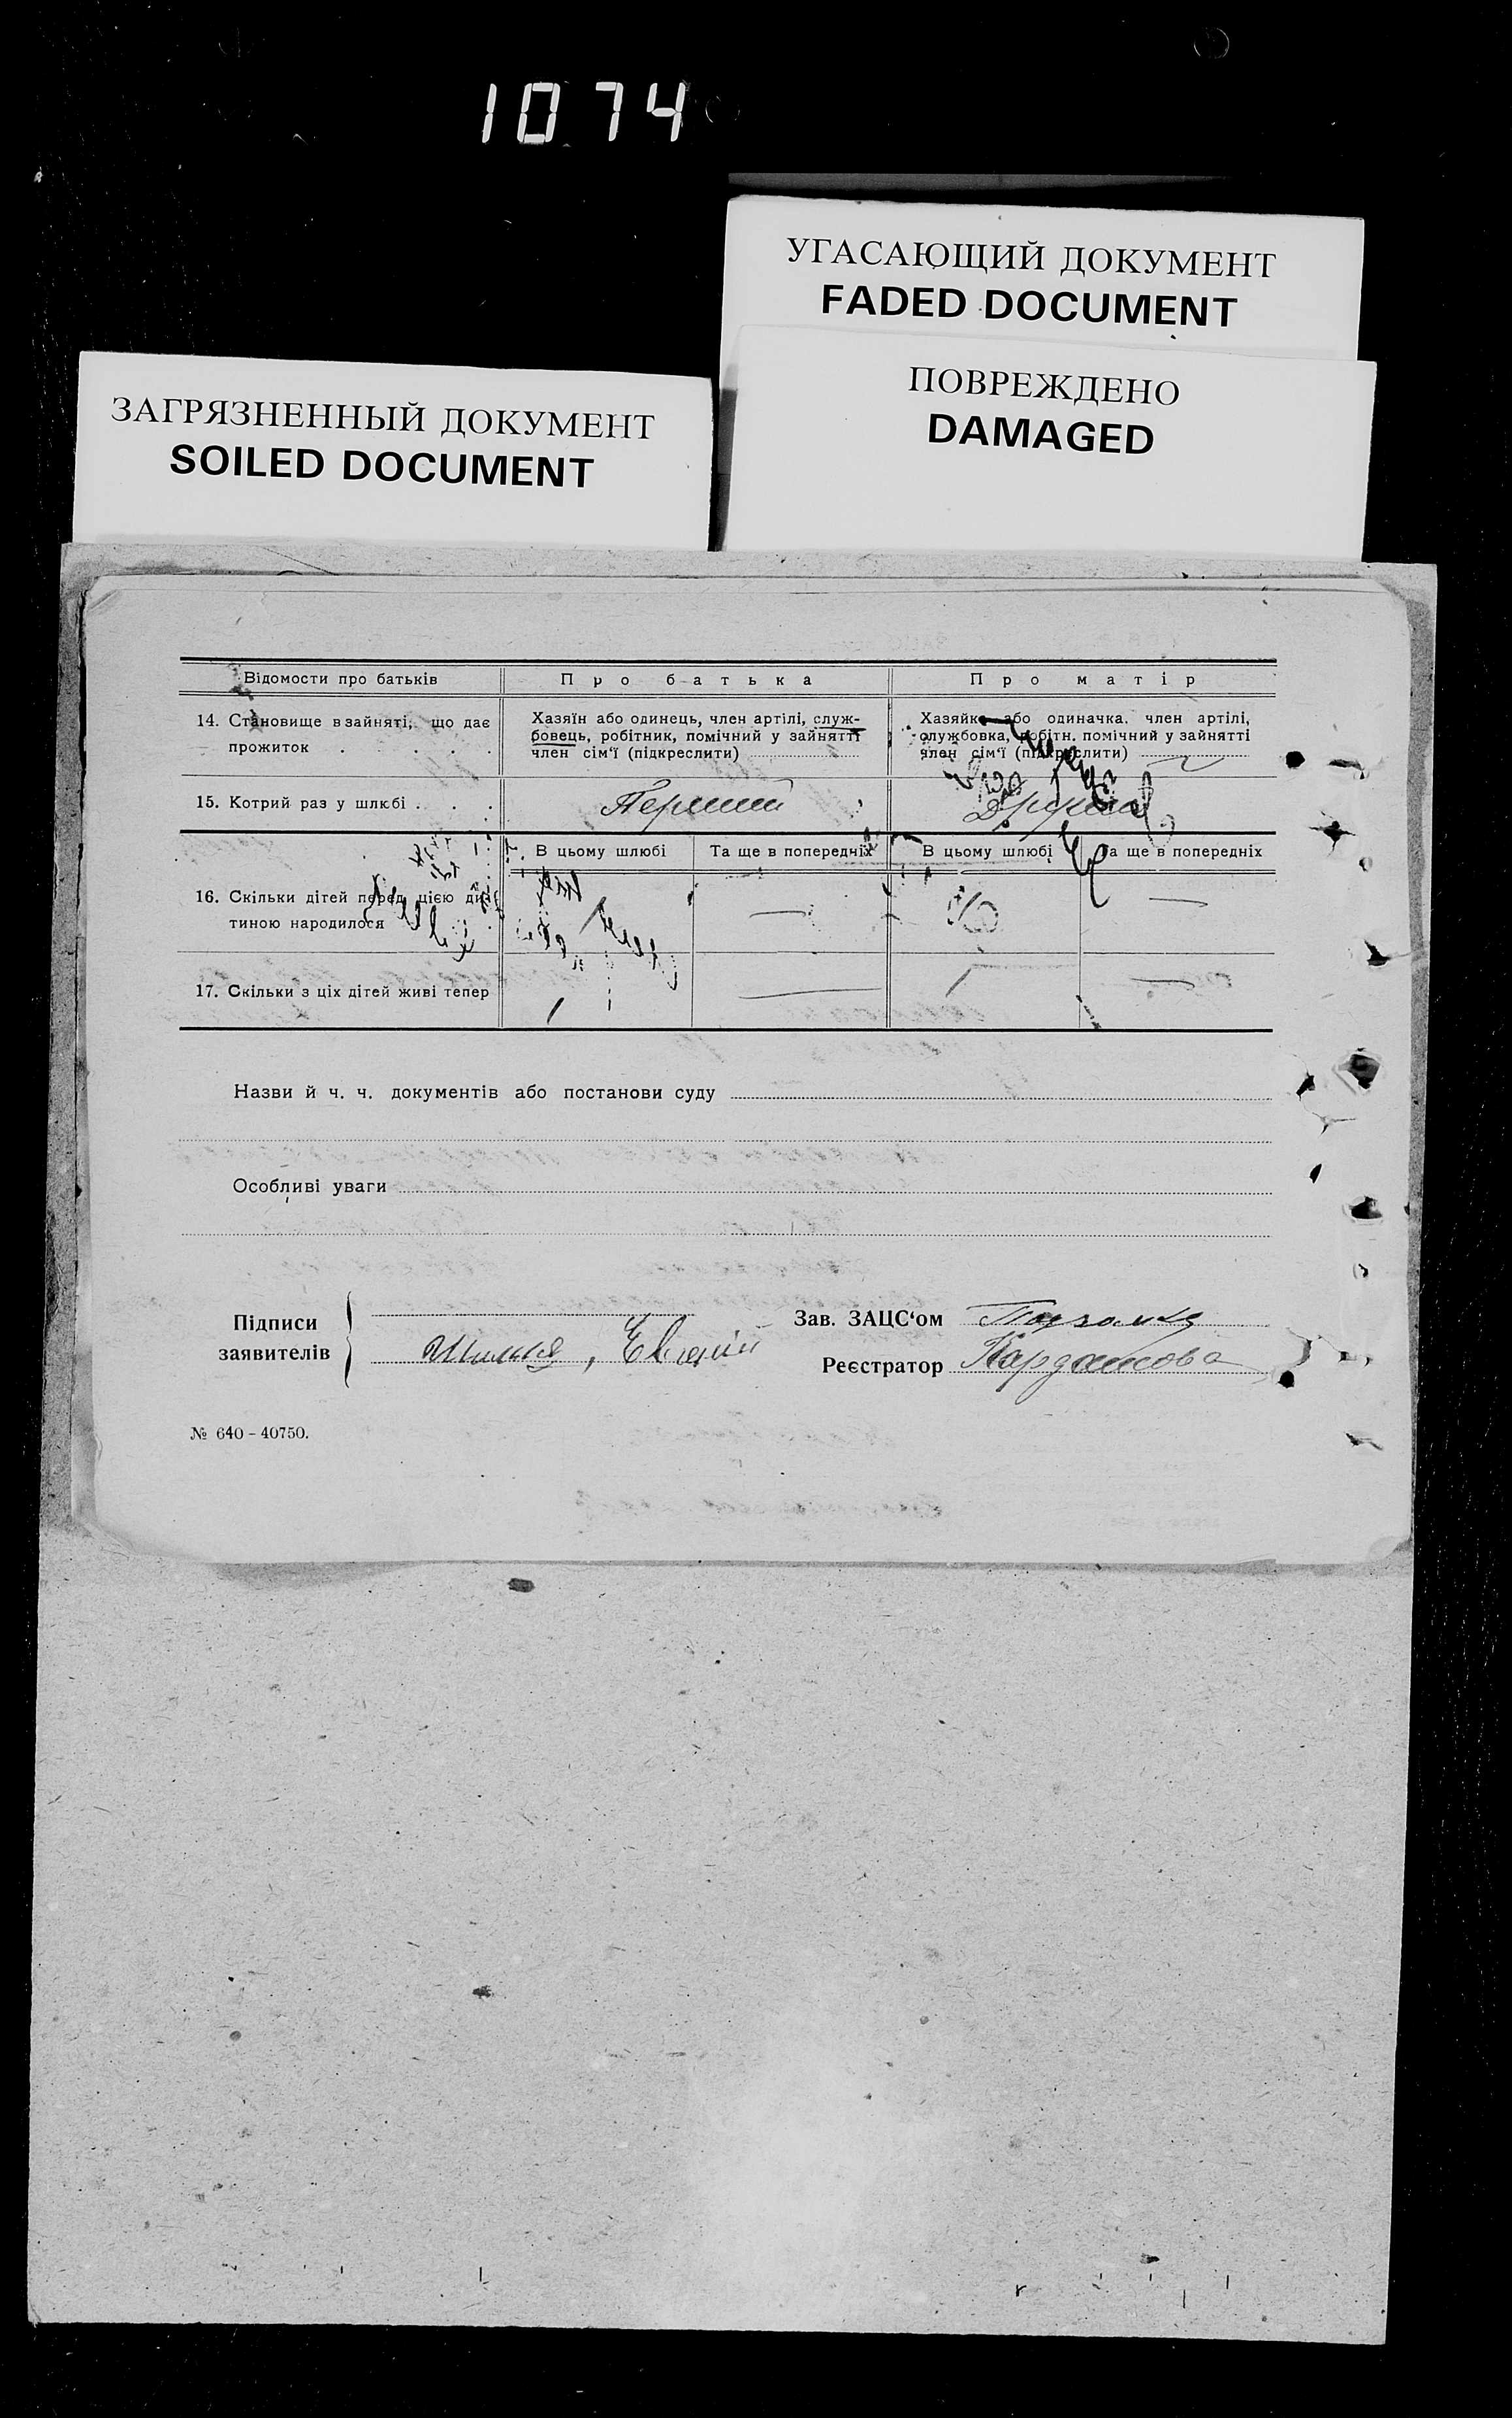 1074
УГАСАЮЩИЙ ДОКУМЕНТ
FADED DOCUMENT
ПОВРЕЖДЕНО
DAMAGED
ЗАГРЯЗНЕННЫЙ ДОКУМЕНТ
SOILED DOCUMENT
Відомости про батьків
Про батька
Про матір
14. Становище в зайняті, що дає
прожиток . . . .
Хазяїн або одинець, член артілі, служ-
бовець, робітник, помічний у зайнятті
член сім‘ї (підкреслити)
Хазяйка або одиначка, член артілі,
службовка, робітн. помічний у зайнятті
член сім‘ї (підкреслити)
15. Котрий раз у шлюбі . . .
Перший
В цьому шлюбі
Та ще в попередніх
В цьому шлюбі
Та ще в попередніх
16. Скільки дітей перед цією ди-
тиною народилося
—
—
17. Скільки з ціх дітей живі тепер
/
—
/
—
Назви й ч. ч. документів або постанови суду
Особливі уваги
Підписи
заявителів
Зав. ЗАЦС‘ом
Реєстратор
№ 640 – 40750.